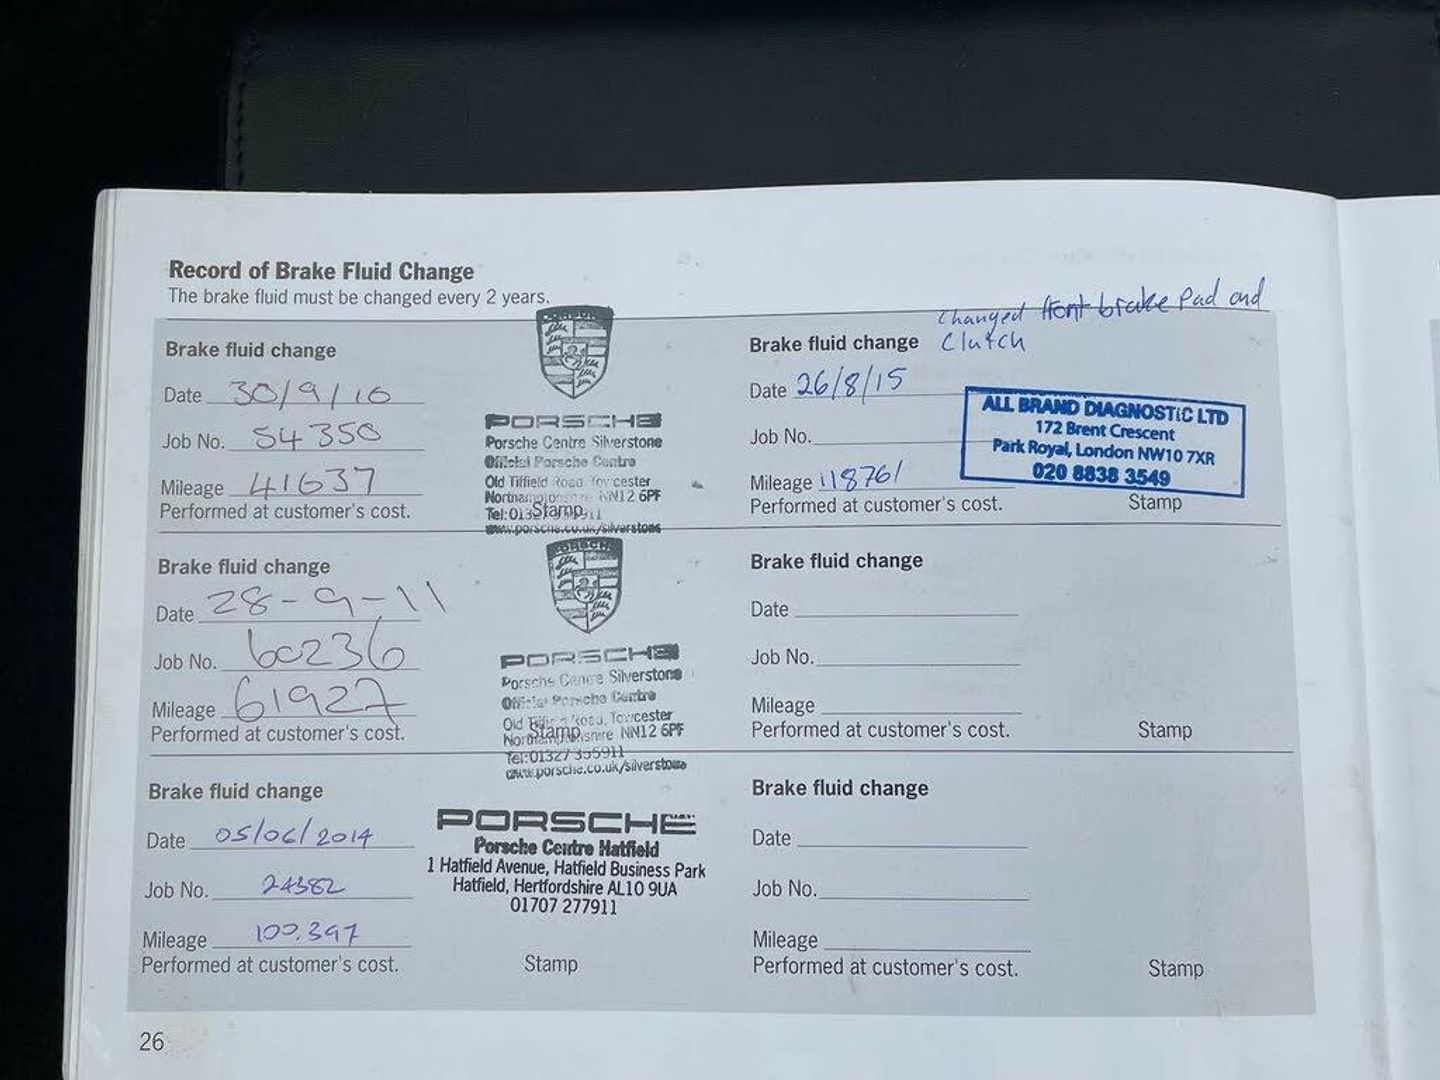 Record of Brake Fluid Change
The brake fluid must be changed every 2 years.
Brake fluid change
Date 30/9/10
Job No. 54350
Mileage 41637
Performed at customer's cost.
PORSCHE
Porsche Centre Silverstone
Official Porsche Centre
Old Tiffield Road Towcester
Northamptonshire NN12 6PF
Tel: 01327 355911
Stamp
www.porsche.co.uk/silverstone
Brake fluid change
Date 28-9-11
Job No. 60236
Mileage 61927
Performed at customer's cost.
PORSCHE
Porsche Centre Silverstone
Official Porsche Centre
Old Tiffield Road, Towcester
Stamp
Northamptonshire NN12 6PF
Tel: 01327 355911
www.porsche.co.uk/silverstone
Brake fluid change
Date 05/06/2014
Job No. 24382
Mileage 100.397
Performed at customer's cost.
PORSCHE
Porsche Centre Hatfield
1 Hatfield Avenue, Hatfield Business Park
Hatfield, Hertfordshire AL10 9UA
01707 277911
Stamp
changed front brake Pad and
Brake fluid change Clutch
Date 26/8/15
Job No.
Mileage 118761
Performed at customer's cost.
ALL BRAND DIAGNOSTIC LTD
172 Brent Crescent
Park Royal, London NW10 7XR
020 8838 3549
Stamp
Brake fluid change
Date
Job No.
Mileage
Performed at customer's cost.
Stamp
Brake fluid change
Date
Job No.
Mileage
Performed at customer's cost.
Stamp
26